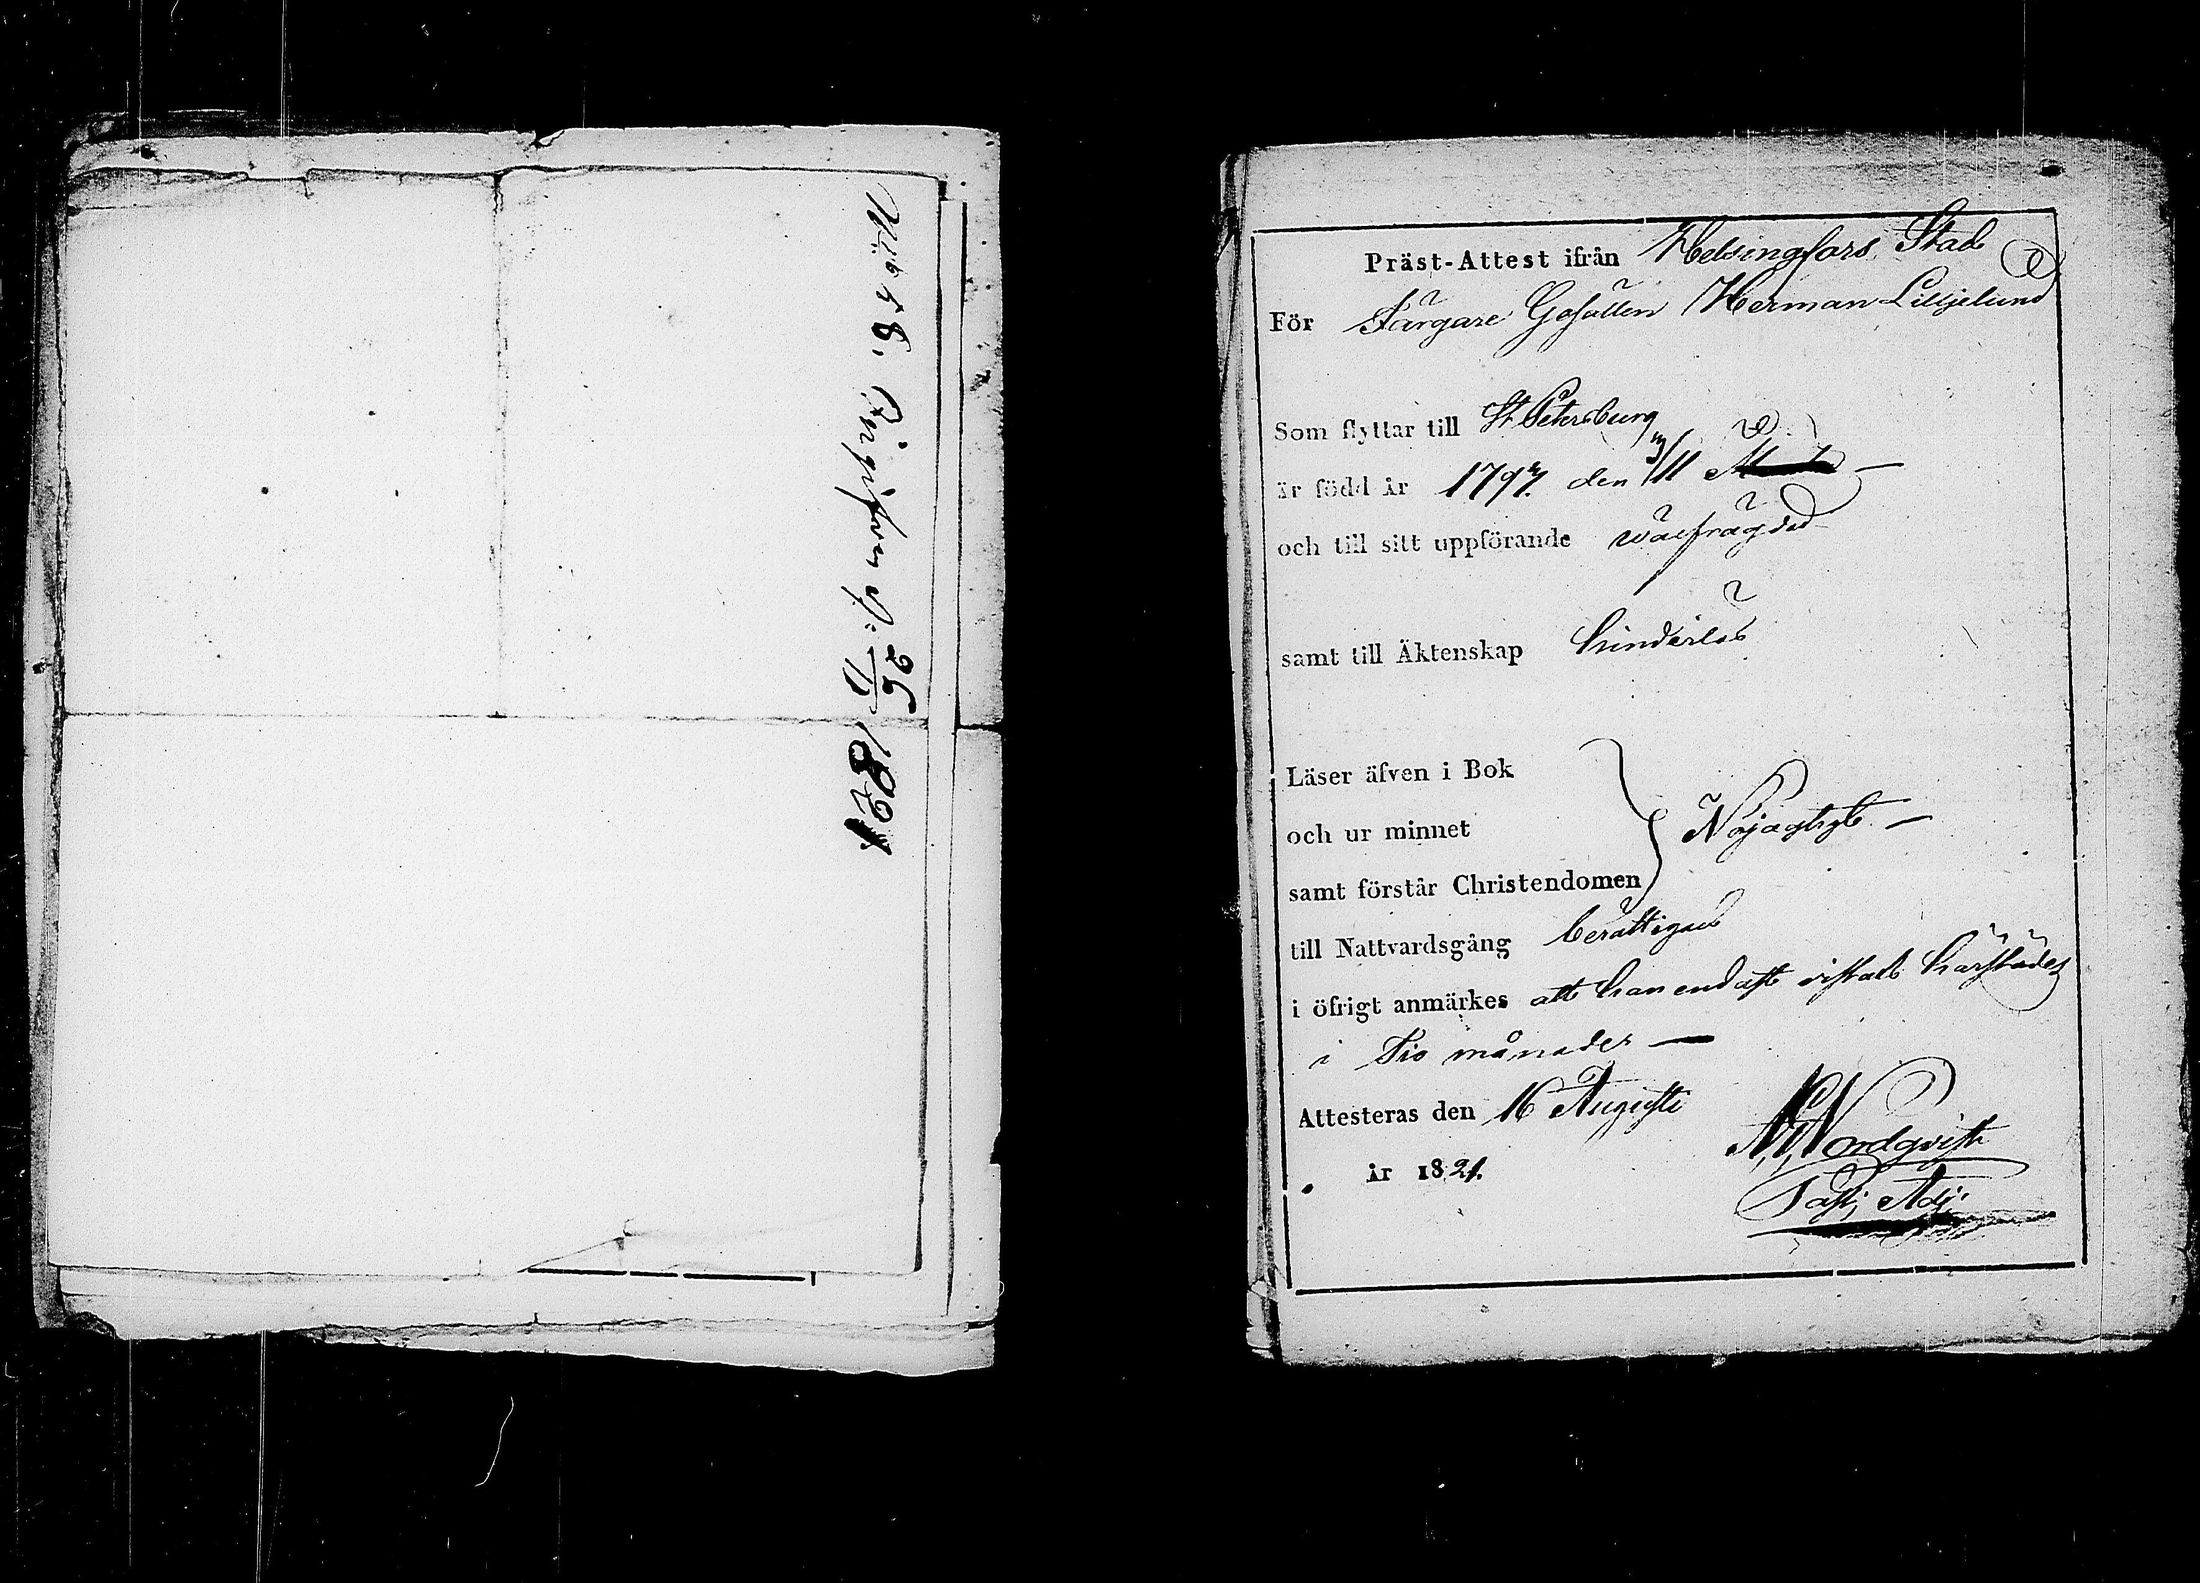 Præst-Attest ifrån Helsingfors Stad
För Färgare Gesällen Herman Liljelund
Som flyttar till St Petersburg
är född år 1797. den 3/11
och till sitt uppförande wälfrägdad
samt till Äktenskap hinderlös
Läser äfven i Bok
och ur minnet
samt förstår Christendomen
Nöjagtigt
till Nattvardsgång berättigad
i öfrigt anmärkes att han endast vistats härstädes
i Tio månader
Attesteras den 16 Augusti
år 1821.
Nordqvist
Past. Adj.
1821